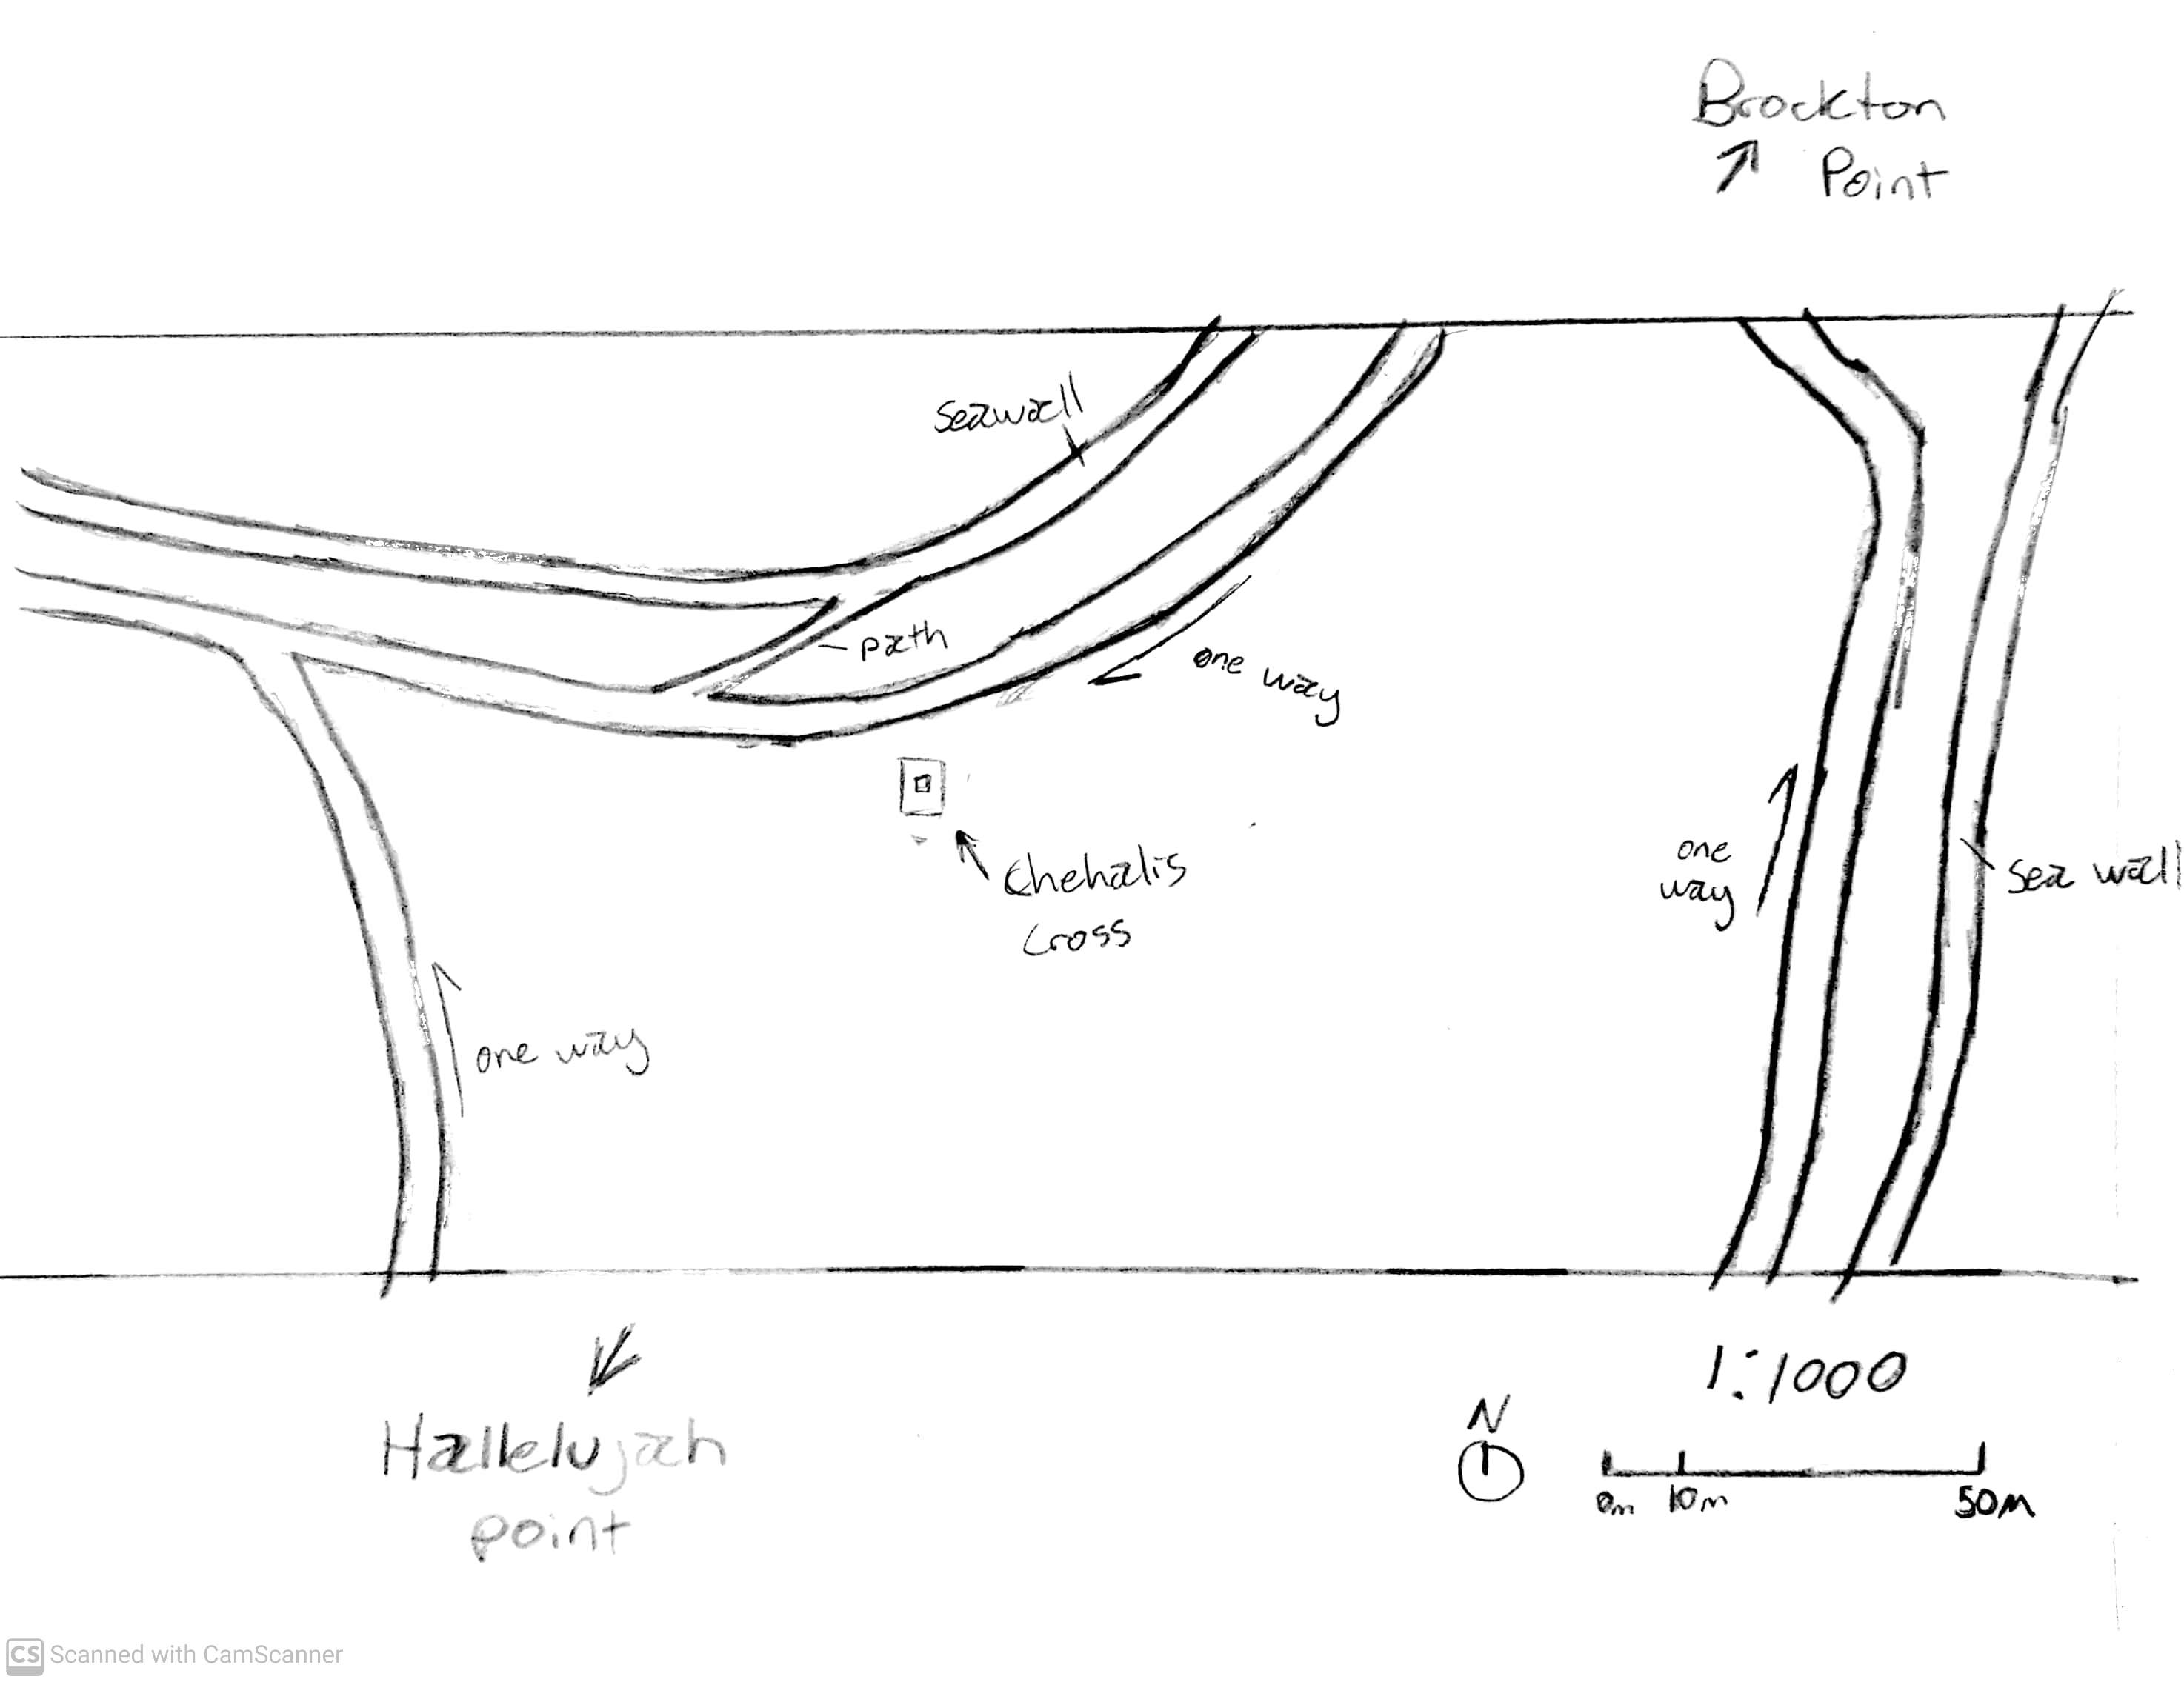 Brockton
Point
Seawall
path
one way
Chehalis
Cross
one
way
Sea wall
one way
Hallelujah
point
1:1000
N
0m 10m 50m
CS Scanned with CamScanner